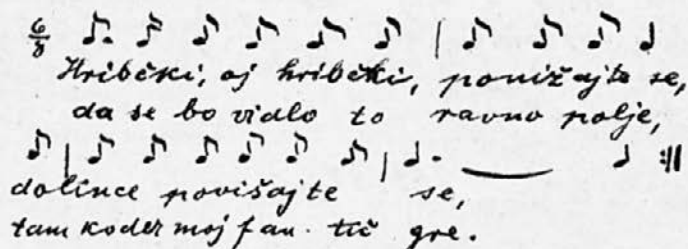 6/8
Hribčki, oj hribčki, ponižajte se,
da se bo vidlo to ravno polje,
dolince povišajte se,
tam koder moj fan- tič gre.